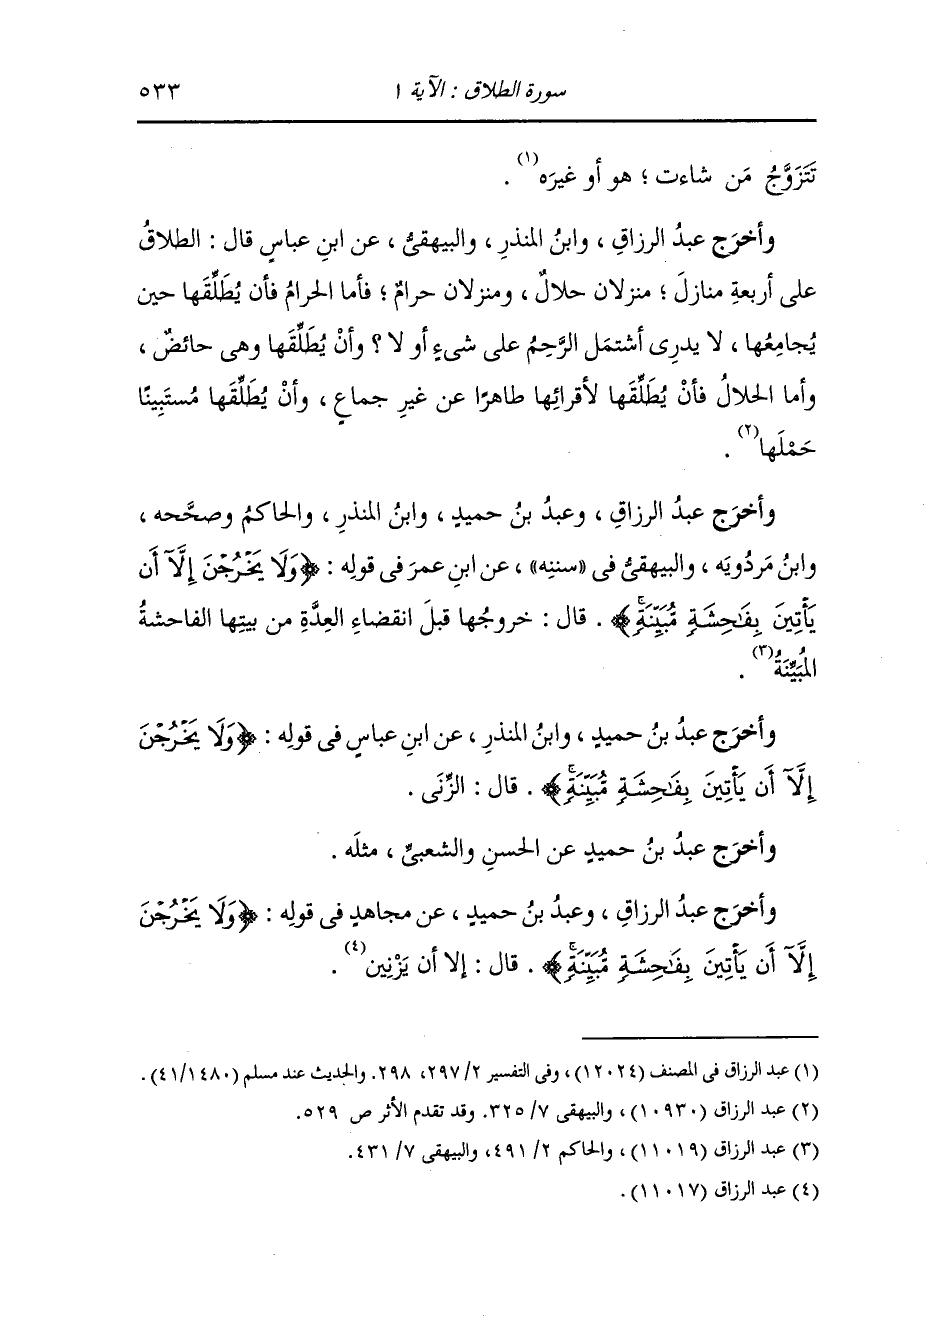 سورة الطلاق : الآية ١ ٥٣٣
تَتَزَوَّجُ مَن شاءت ؛ هو أو غيرَه(١) .
وأخرَج عبدُ الرزاقِ ، وابنُ المنذرِ ، والبيهقىُّ ، عن ابنِ عباسٍ قال : الطلاقُ
على أربعةِ منازلَ ؛ منزلان حلالٌ ، ومنزلان حرامٌ ؛ فأما الحرامُ فأن يُطَلِّقَها حين
يُجامِعُها ، لا يدرِى أشتمَل الرَّحِمُ على شىءٍ أو لا ؟ وأنْ يُطَلِّقَها وهى حائضٌ ،
وأما الحلالُ فأنْ يُطَلِّقَها لأقرائِها طاهرًا عن غيرِ جماعٍ ، وأنْ يُطَلِّقَها مُستَبِينًا
حَمْلَها(٢) .
وأخرَج عبدُ الرزاقِ ، وعبدُ بنُ حميدٍ ، وابنُ المنذرِ ، والحاكمُ وصحَّحه ،
وابنُ مَردُويَه ، والبيهقىُّ فى «سننِه» ، عن ابنِ عمرَ فى قولِه : ﴿وَلَا يَخْرُجْنَ إِلَّآ أَن
يَأْتِينَ بِفَٰحِشَةٍ مُّبَيِّنَةٍۚ﴾ . قال : خروجُها قبلَ انقضاءِ العِدَّةِ من بيتِها الفاحشةُ
المُبَيِّنَةُ(٣) .
وأخرَج عبدُ بنُ حميدٍ ، وابنُ المنذرِ ، عن ابنِ عباسٍ فى قولِه : ﴿وَلَا يَخْرُجْنَ
إِلَّآ أَن يَأْتِينَ بِفَٰحِشَةٍ مُّبَيِّنَةٍۚ﴾ . قال : الزِّنَى .
وأخرَج عبدُ بنُ حميدٍ عن الحسنِ والشعبىِّ ، مثلَه .
وأخرَج عبدُ الرزاقِ ، وعبدُ بنُ حميدٍ ، عن مجاهدٍ فى قولِه : ﴿وَلَا يَخْرُجْنَ
إِلَّآ أَن يَأْتِينَ بِفَٰحِشَةٍ مُّبَيِّنَةٍۚ﴾ . قال : إلا أن يَزْنِين(٤) .
(١) عبد الرزاق فى المصنف (١٢٠٢٤) ، وفى التفسير ٢/ ٢٩٧، ٢٩٨. والحديث عند مسلم (٤١/١٤٨٠) .
(٢) عبد الرزاق (١٠٩٣٠) ، والبيهقى ٧/ ٣٢٥. وقد تقدم الأثر ص ٥٢٩.
(٣) عبد الرزاق (١١٠١٩) ، والحاكم ٢/ ٤٩١، والبيهقى ٧/ ٤٣١.
(٤) عبد الرزاق (١١٠١٧) .